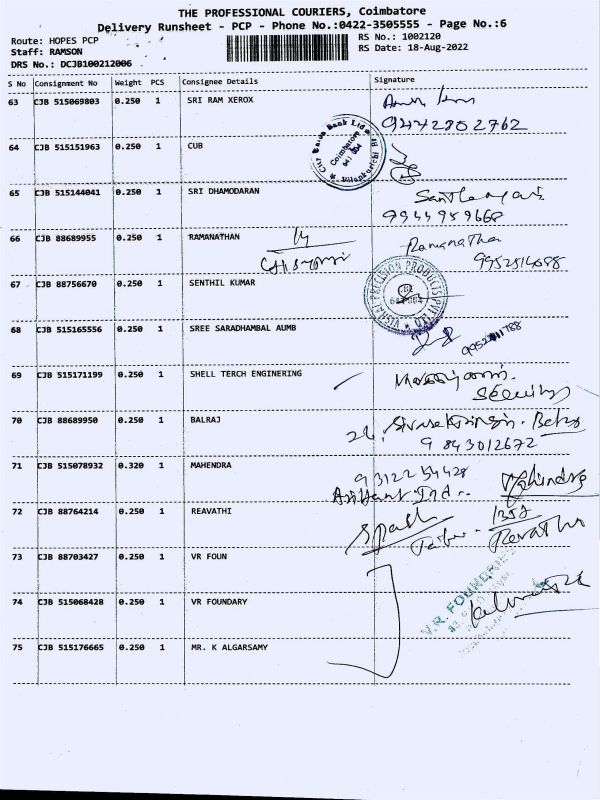 THE PROFESSIONAL COURIERS, Coimbatore
Delivery Runsheet - PCP - Phone No.:0422-3505555 - Page No.:6
Route: HOPES PCP
RS No.: 1002120
Staff: RAMSON
RS Date: 18-Aug-2022
DRS No.: DCJB100212006
S No Consignment No Weight PCS Consignee Details Signature
63 CJB 515069803 0.250 1 SRI RAM XEROX
9442802762
64 CJB 515151963 0.250 1 CUB
65 CJB 515144041 0.250 1 SRI DHAMODARAN
9944959668
66 CJB 88689955 0.250 1 RAMANATHAN Ramanathan
67 CJB 88756670 0.250 1 SENTHIL KUMAR
VISHAL PRECISION PRODUCTS PVT LTD
68 CJB 515165556 0.250 1 SREE SARADHAMBAL AUMB
69 CJB 515171199 0.250 1 SHELL TERCH ENGINERING
Security
70 CJB 88689950 0.250 1 BALRAJ
9843012672
71 CJB 515078932 0.320 1 MAHENDRA
9312254428
Mahindra
72 CJB 88764214 0.250 1 REAVATHI
Revathi
73 CJB 88703427 0.250 1 VR FOUN
V.R. FOUNDRIES
74 CJB 515068428 0.250 1 VR FOUNDARY
75 CJB 515176665 0.250 1 MR. K ALGARSAMY